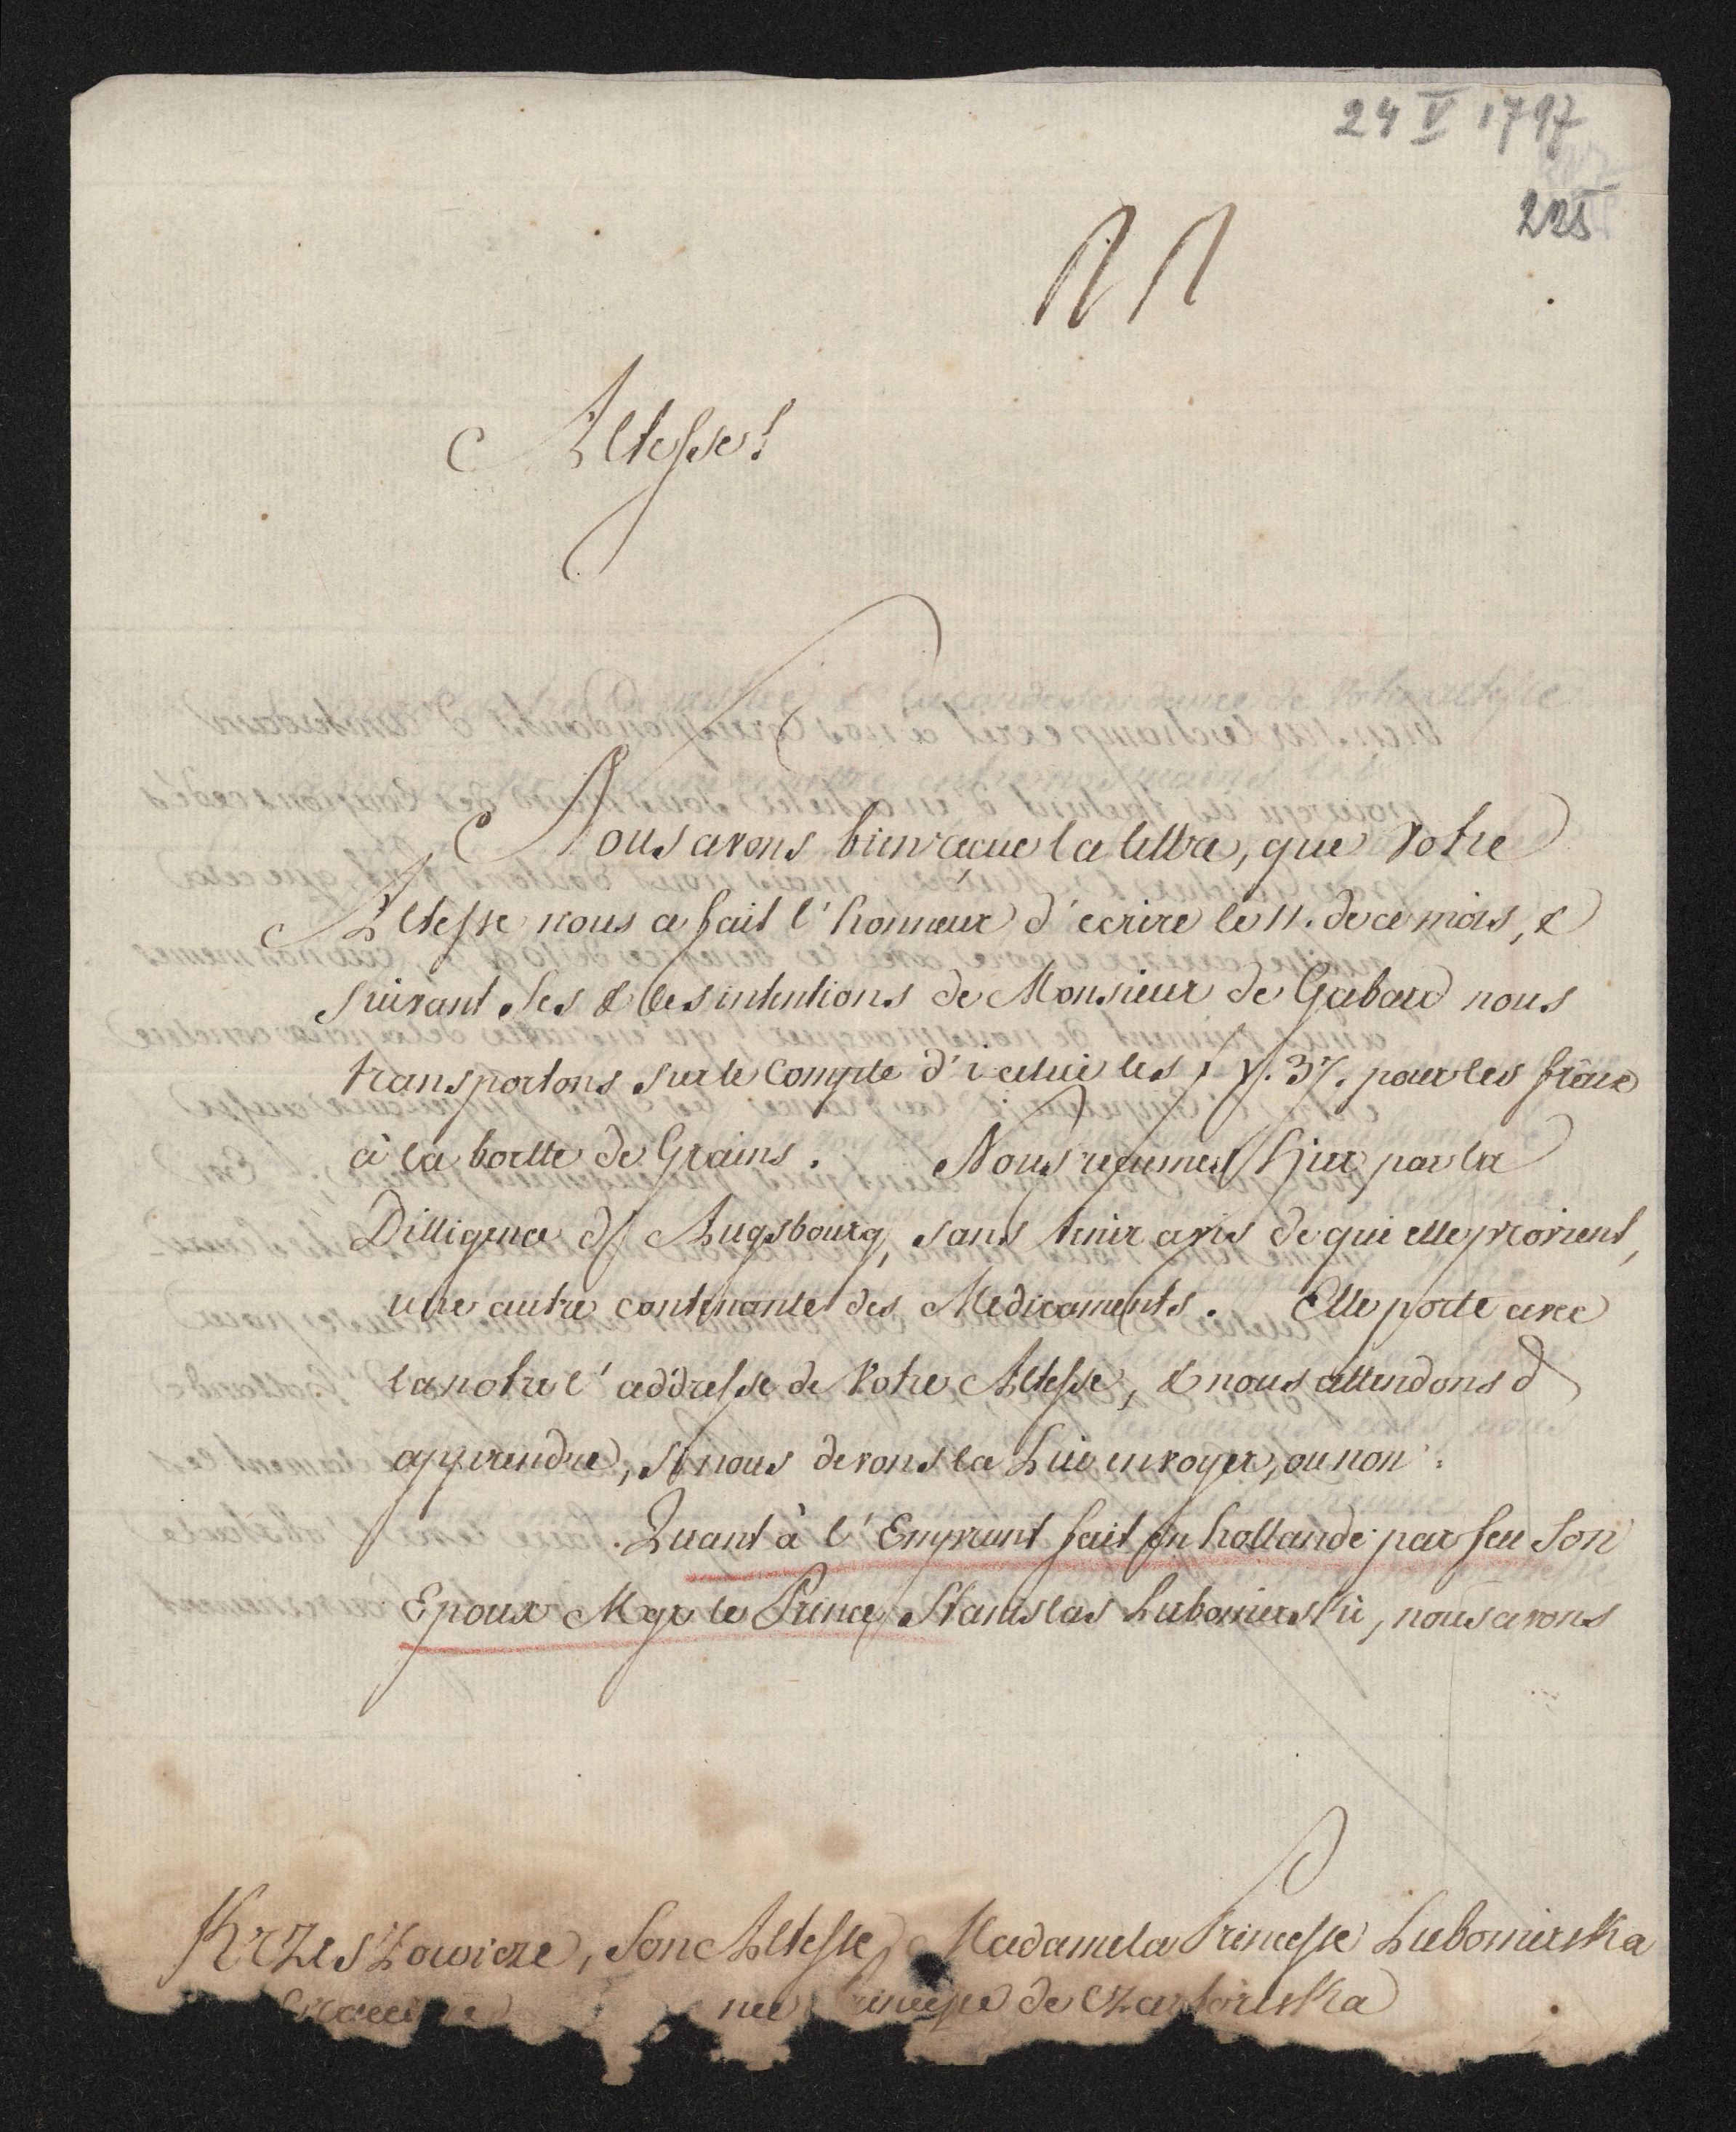 24 V 1797
225
Altesse!
Nous avons bien reçue la lettre, que Votre
Altesse nous a fait l'honneur d'ecrire le 11. de ce mois, &
suivant Ses & les intentions de Monsieur de Gabard nous
transportons sur le Compte d'icelui les f 37. pour les frais
à la boette de Grains. Nous reçumes hier par la
Dilligence d' Augsbourg, sans tenir avis de qui elle provient,
une autre contenante des Medicaments. Elle porte avec
la notre l'addresse de Votre Altesse, & nous attendons d'
apprendre, si nous devons la Lui envoyer, ou non.
Quant à l'Emprunt fait en hollande par feu Son
Epoux Mgr le Prince Stanislas Lubomirski, nous avons
Krzeszowice, Son Altesse Madame la Princesse Lubomirska
née Princesse de Czartoriska